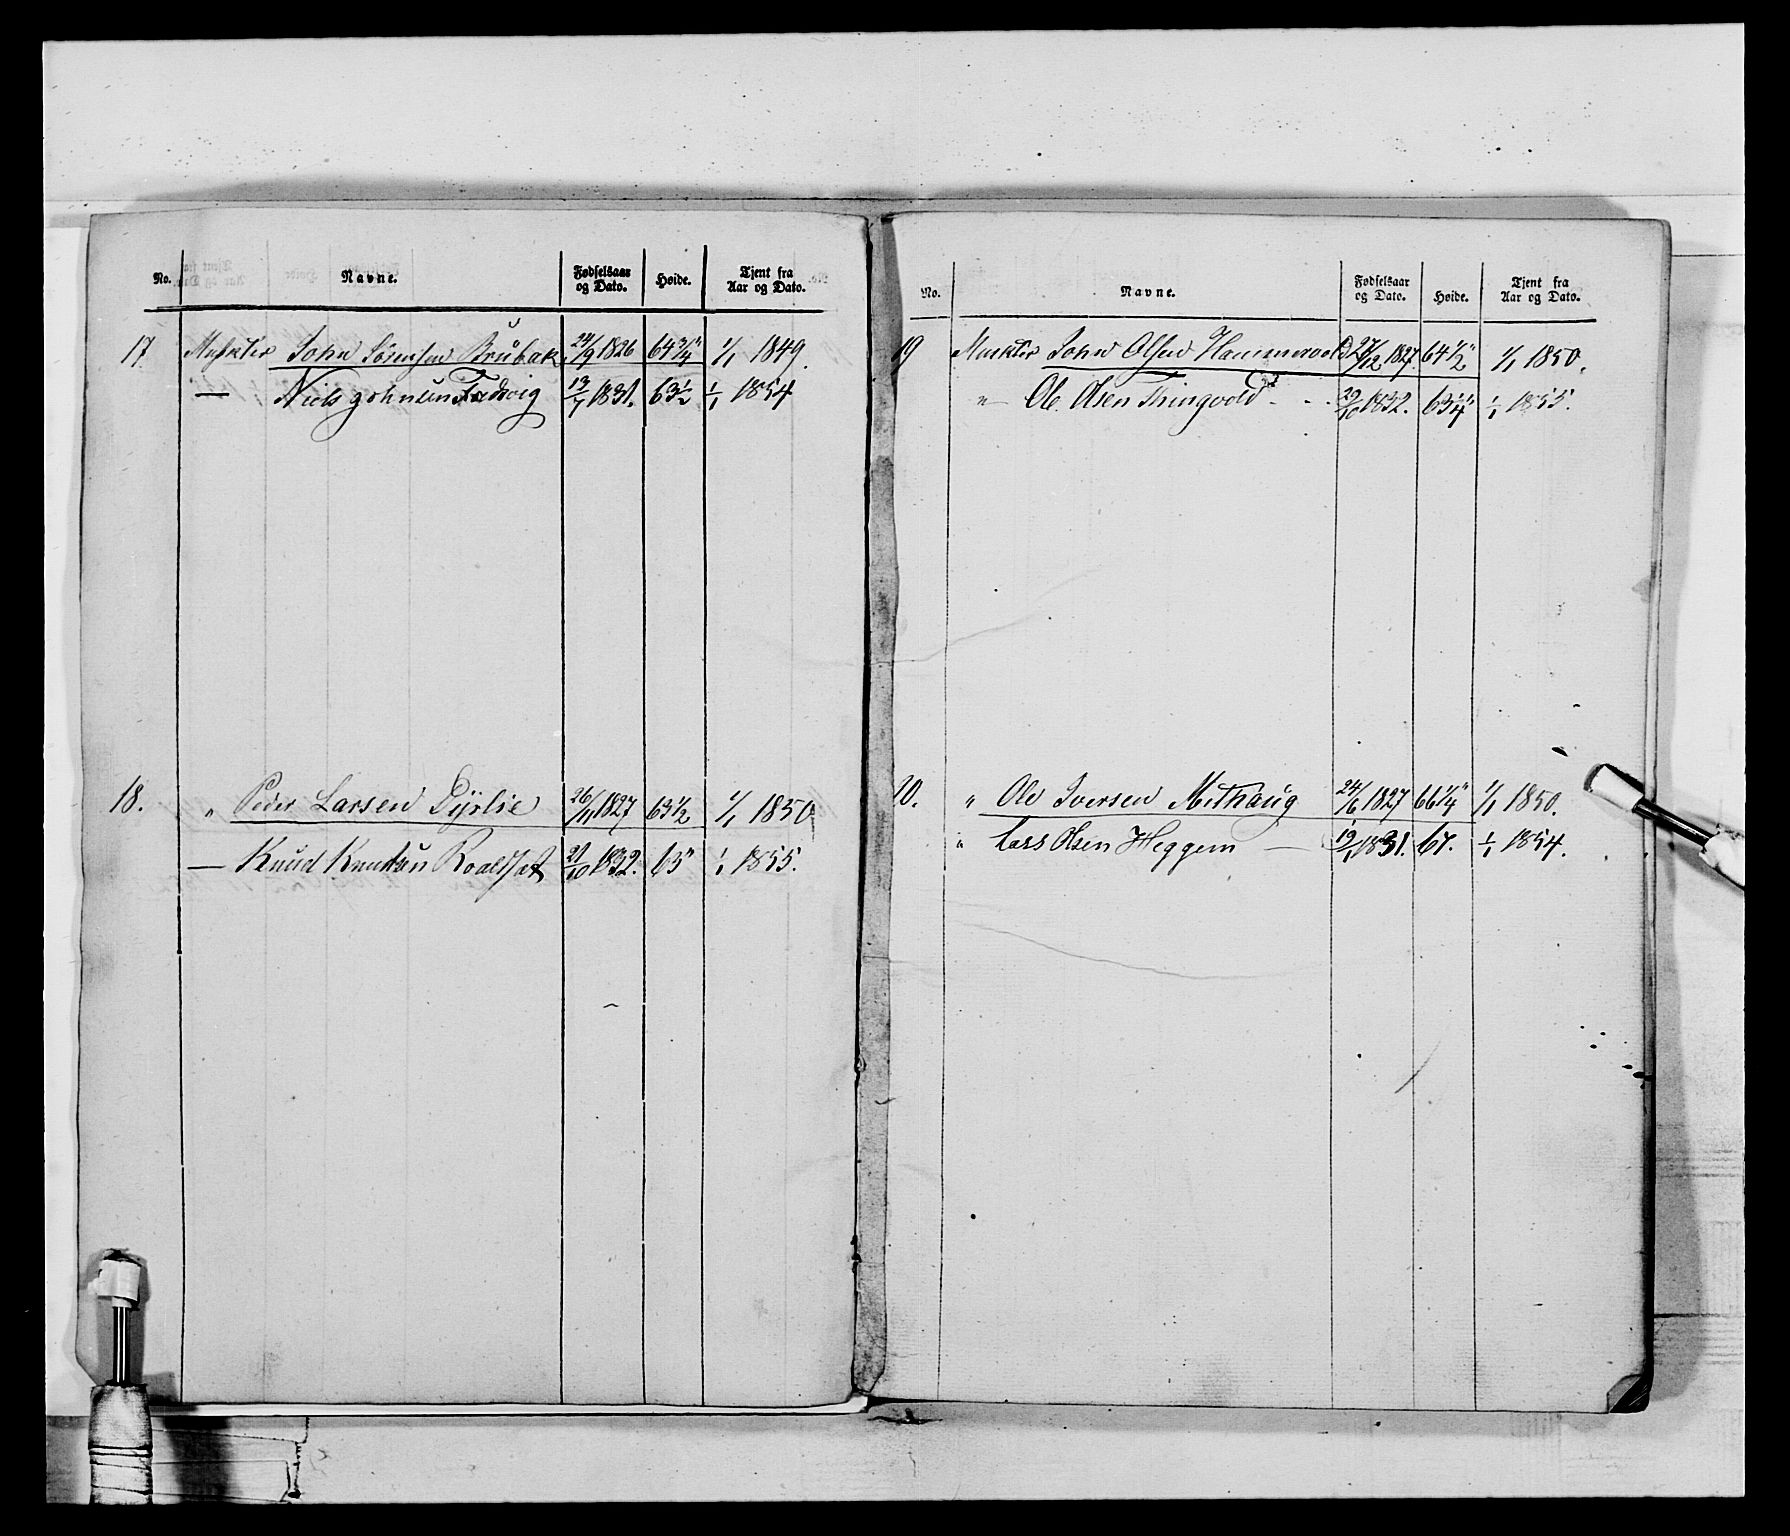 No. Navne. Fødselsaar og Dato. Høide. Tjent fra Aar og Dato.
17. Musktr John Sörensen Brübak 24/9 1826 64 3/4" 1/1 1849.
— Niels Johnsen 13/7 1831. 63 1/2 1/1 1854
18. " Peder Larsen Dyrlie 26/11 1827 63 1/2 1/1 1850
— Knud Knudsen Roaldset 21/10 1832. 65" 1/1 1855.
No. Navne. Fødselsaar og Dato. Høide. Tjent fra Aar og Dato.
19 Musktr John Olsen Hammervold 27/12 1827. 64 1/2" 1/1 1850.
" Ole Olsen Thingvold 29/10 1832. 63 1/4" 1/1 1855.
20. " Ole Iversen Mithaüg 24/6 1827 66 1/4" 1/1 1850.
" Lars Olsen Heggem — 19/1 1831. 67. 1/1 1854.